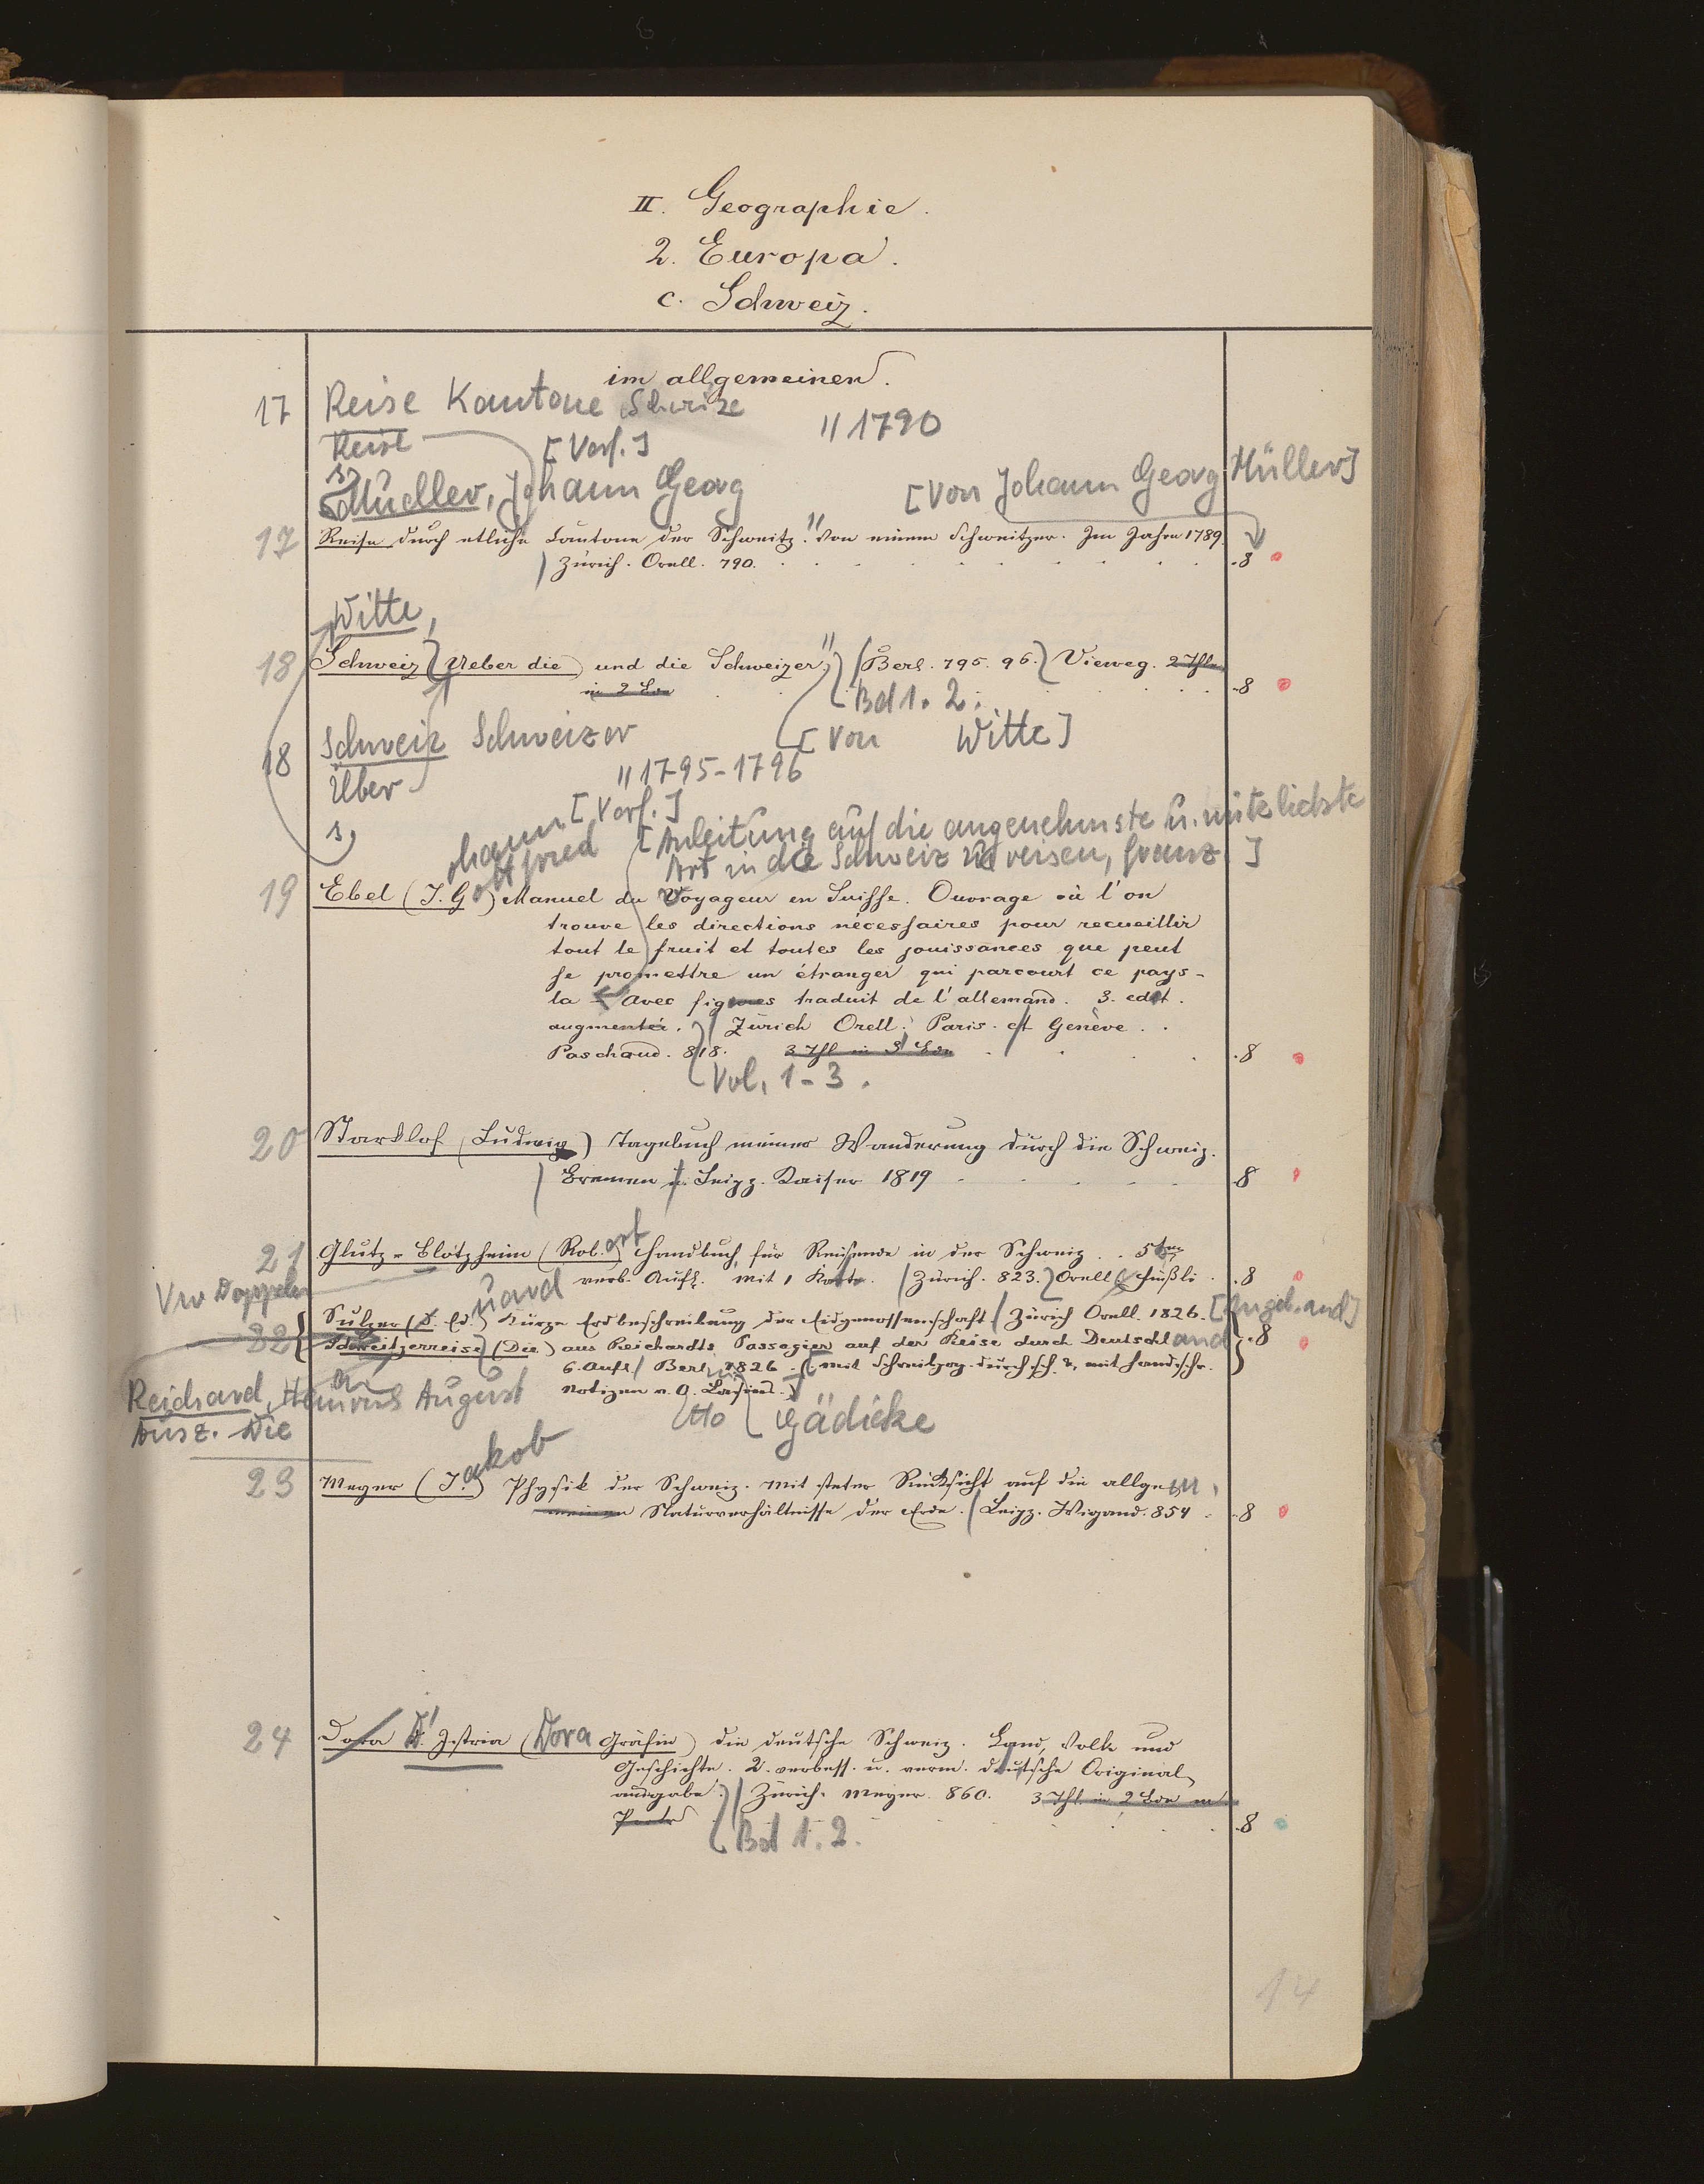 II. Geographie.
2. Europa.
c. Schweiz.
im allgemeinen.
17 Reise Kantone Schweize
" 1790
Reise [Verf.]
s. Mueller, Johann Georg
[Von Johann Georg Müller]
17 Reise durch etliche Cantone der Schweitz." Von einem Schweitzer. Im Jahre 1789.
Zürich. Orell. 790. 8
Witte,
18 Schweiz (Ueber die) und die Schweizer." (Berl. 795. 96.) Vieweg. 2 Thle
in 2 Bdn 8
Bd 1. 2.
18 Schweiz Schweizer [Von Witte]
Über " 1795-1796
s, [Verf.]
[Anleitung auf die angenehmste u. nützlichste
Art in die Schweiz zu reisen, franz.]
19 Ebel (J. G.) ohann ottfried Manuel du Voyageur en Suisse. Ouvrage où l'on
trouve les directions nécessaires pour recueillir
tout le fruit et toutes les jouissances que peut
se promettre un étranger qui parcourt ce pays-
la - Avec figures traduit de l'allemand. 3. edit.
augmentée. Zürich Orell. Paris. et Genève.
Paschaud. 818. 3 Thl in 3 Bdn 8
Vol. 1-3.
20 Starklof (Ludwig) Tagebuch meiner Wanderung durch die Schweiz.
Bremen u. Leipz. Kaiser 1819 8
21 Glutz-Blotzheim (Rob.ert) Handbuch für Reisende in der Schweiz. 5te
verb. Aufl. mit 1 Karte. (Zürich. 823.) Orell & Füßli 8
Vw Doppeln
Sulzer (D. Ed.uard) Kurze Erdbeschreibung der Eidgenossenschaft Zürich Orell. 1826. [Angeb. and]
22 Schweitzerreise (Die) aus Reichardts Passagier auf der Reise durch Deutschland 8
6. Aufl. Berl. 1826. mit Schreibpap. durchsch. &, mit handschr.
Notizen v. O.
Reichard, Heinrich August
Ausz. Die
Otto Gädicke
23 Meyer (J.akob) Physik der Schweiz. mit steter Rücksicht auf die allgem.
meinen Naturverhältnisse der Erde. (Leipz. Wigand. 854. 8
24 Dora D'Istria (Dora Gräfin) die deutsche Schweiz. Land, Volk und
Geschichte. 2. verbess. u. verm. deutsche Original
ausgabe. Zürich. Meyer. 860. 3 Thl. in 2 Bdn m
8
Bd 1. 2.
14